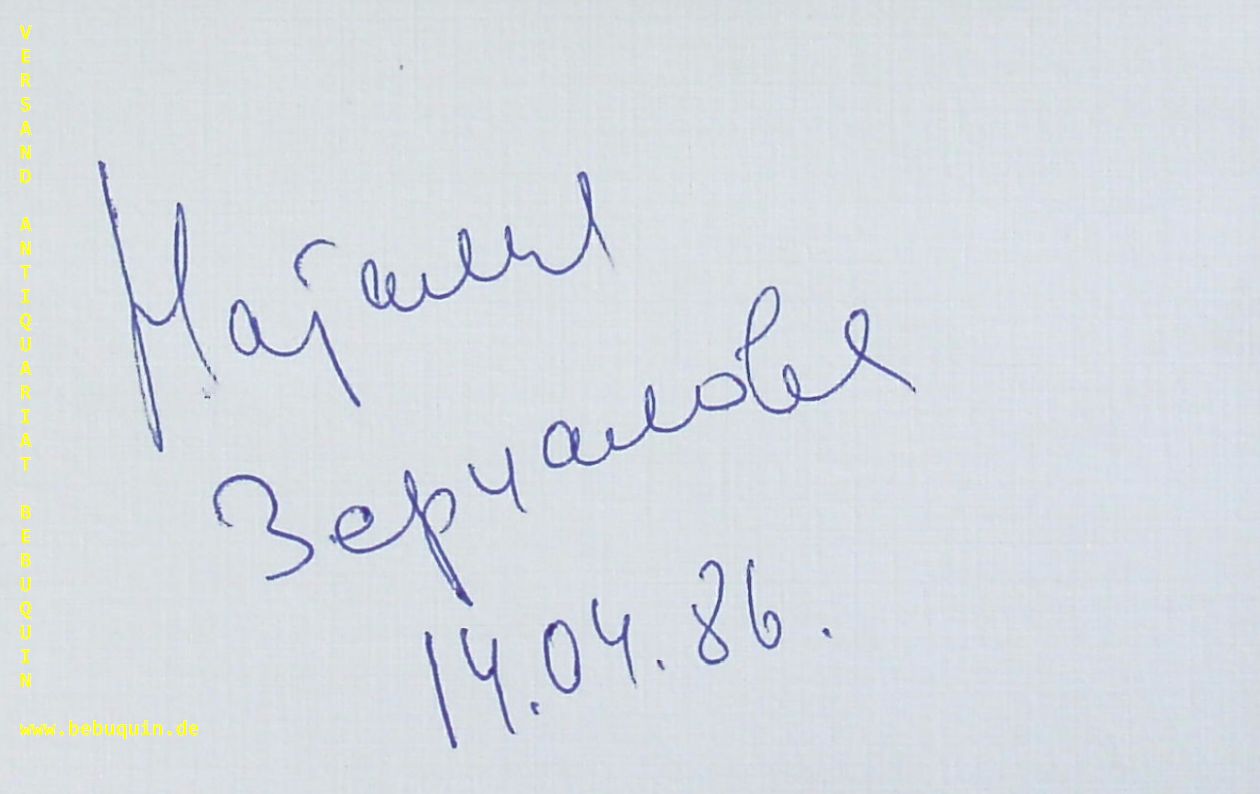 VERSAND ANTIQUARIAT BEBUQUIN
Наталия
Зерчалова
14.04.86.
www.bebuquin.de